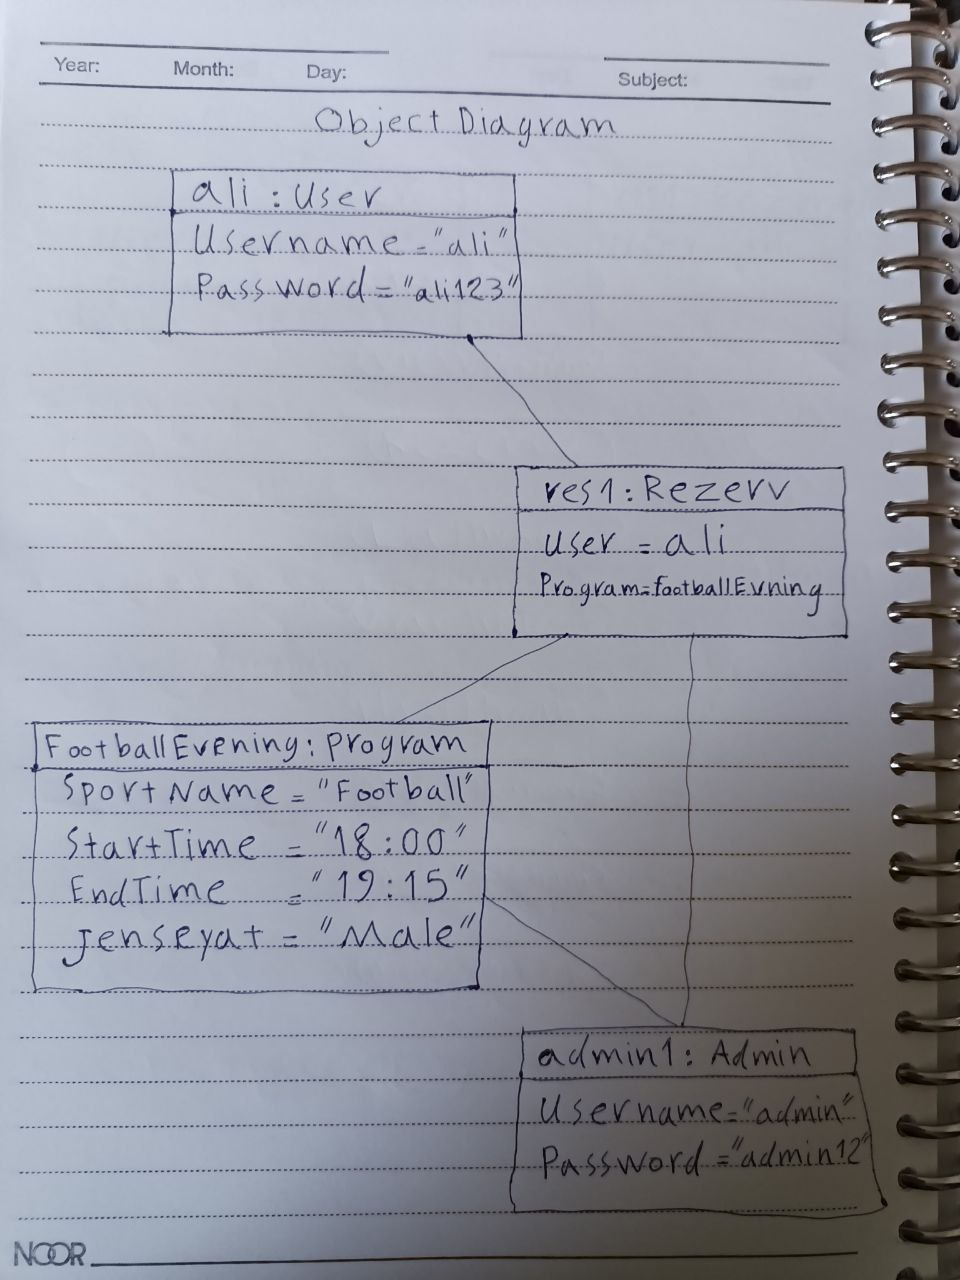 Year: Month: Day: Subject:
Object Diagram
ali : User
Username = "ali"
PassWord = "ali123"
res1 : Rezerv
User = ali
Program=footballEvning
FootballEvening : Program
SportName = "Football"
StartTime = "18:00"
EndTime = "19:15"
jenseyat = "Male"
admin1 : Admin
Username="admin"
Password ="admin12"
NOOR